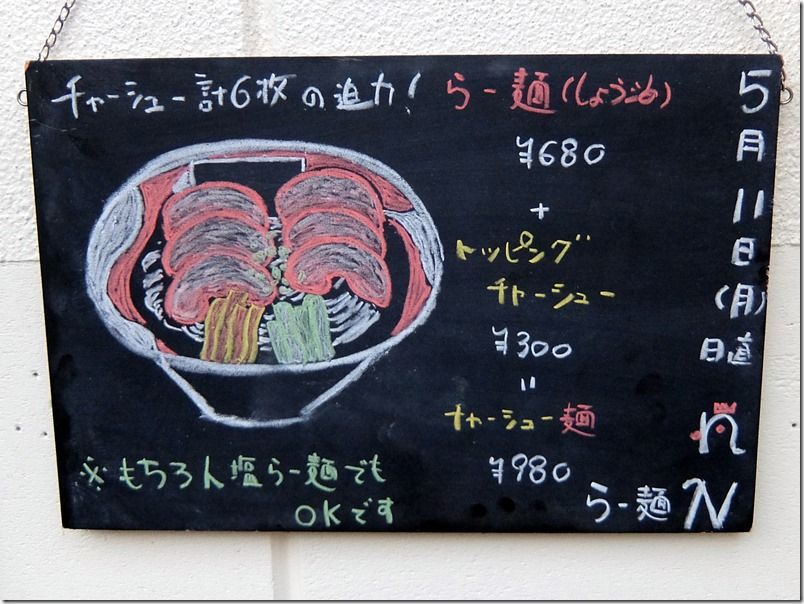 チャーシュー計6枚の迫力!
らー麺(しょうゆ)
¥680
+
トッピング
チャーシュー
¥300
=
チャーシュー麺
¥980
※もちろん塩らー麺でも
OKです
5月11日(月)
日直
n
らー麺N